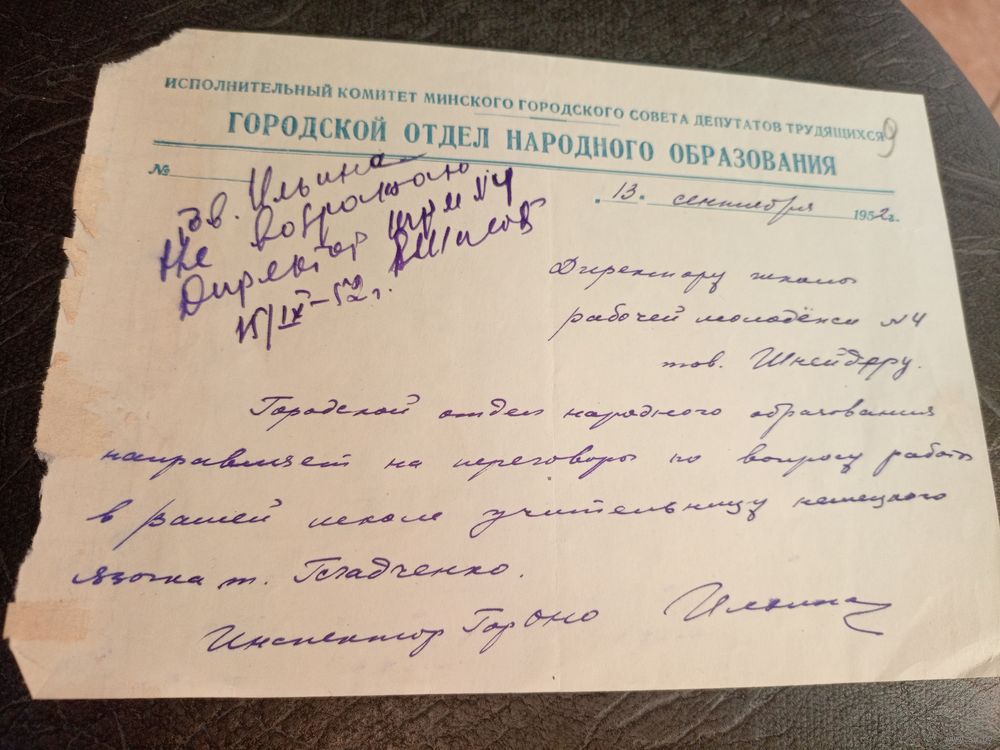 ИСПОЛНИТЕЛЬНЫЙ КОМИТЕТ МИНСКОГО ГОРОДСКОГО СОВЕТА ДЕПУТАТОВ ТРУДЯЩИХСЯ
9
ГОРОДСКОЙ ОТДЕЛ НАРОДНОГО ОБРАЗОВАНИЯ
№
13. сентября 1952г.
Ильина
Не возражаю
Директор шрм №4
15/IX-52 г.
Директору школы
рабочей молодёжи №4
тов. Шнейдеру.
Городской отдел народного образования
направляет на переговоры по вопросу работы
в вашей школе учительницу немецкого
языка т. Гладченко.
Инспектор ГорОНО Ильина